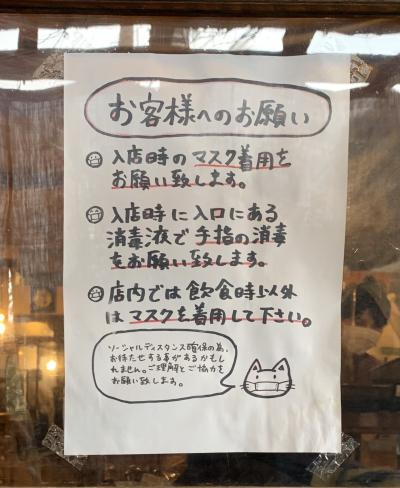 お客様へのお願い
入店時のマスク着用を
お願い致します。
入店時に入口にある
消毒液で手指の消毒
をお願い致します。
店内では飲食時以外
はマスクを着用して下さい。
ソーシャルディスタンス確保の為、
お待たせする事があるかもし
れません。ご理解とご協力を
お願い致します。